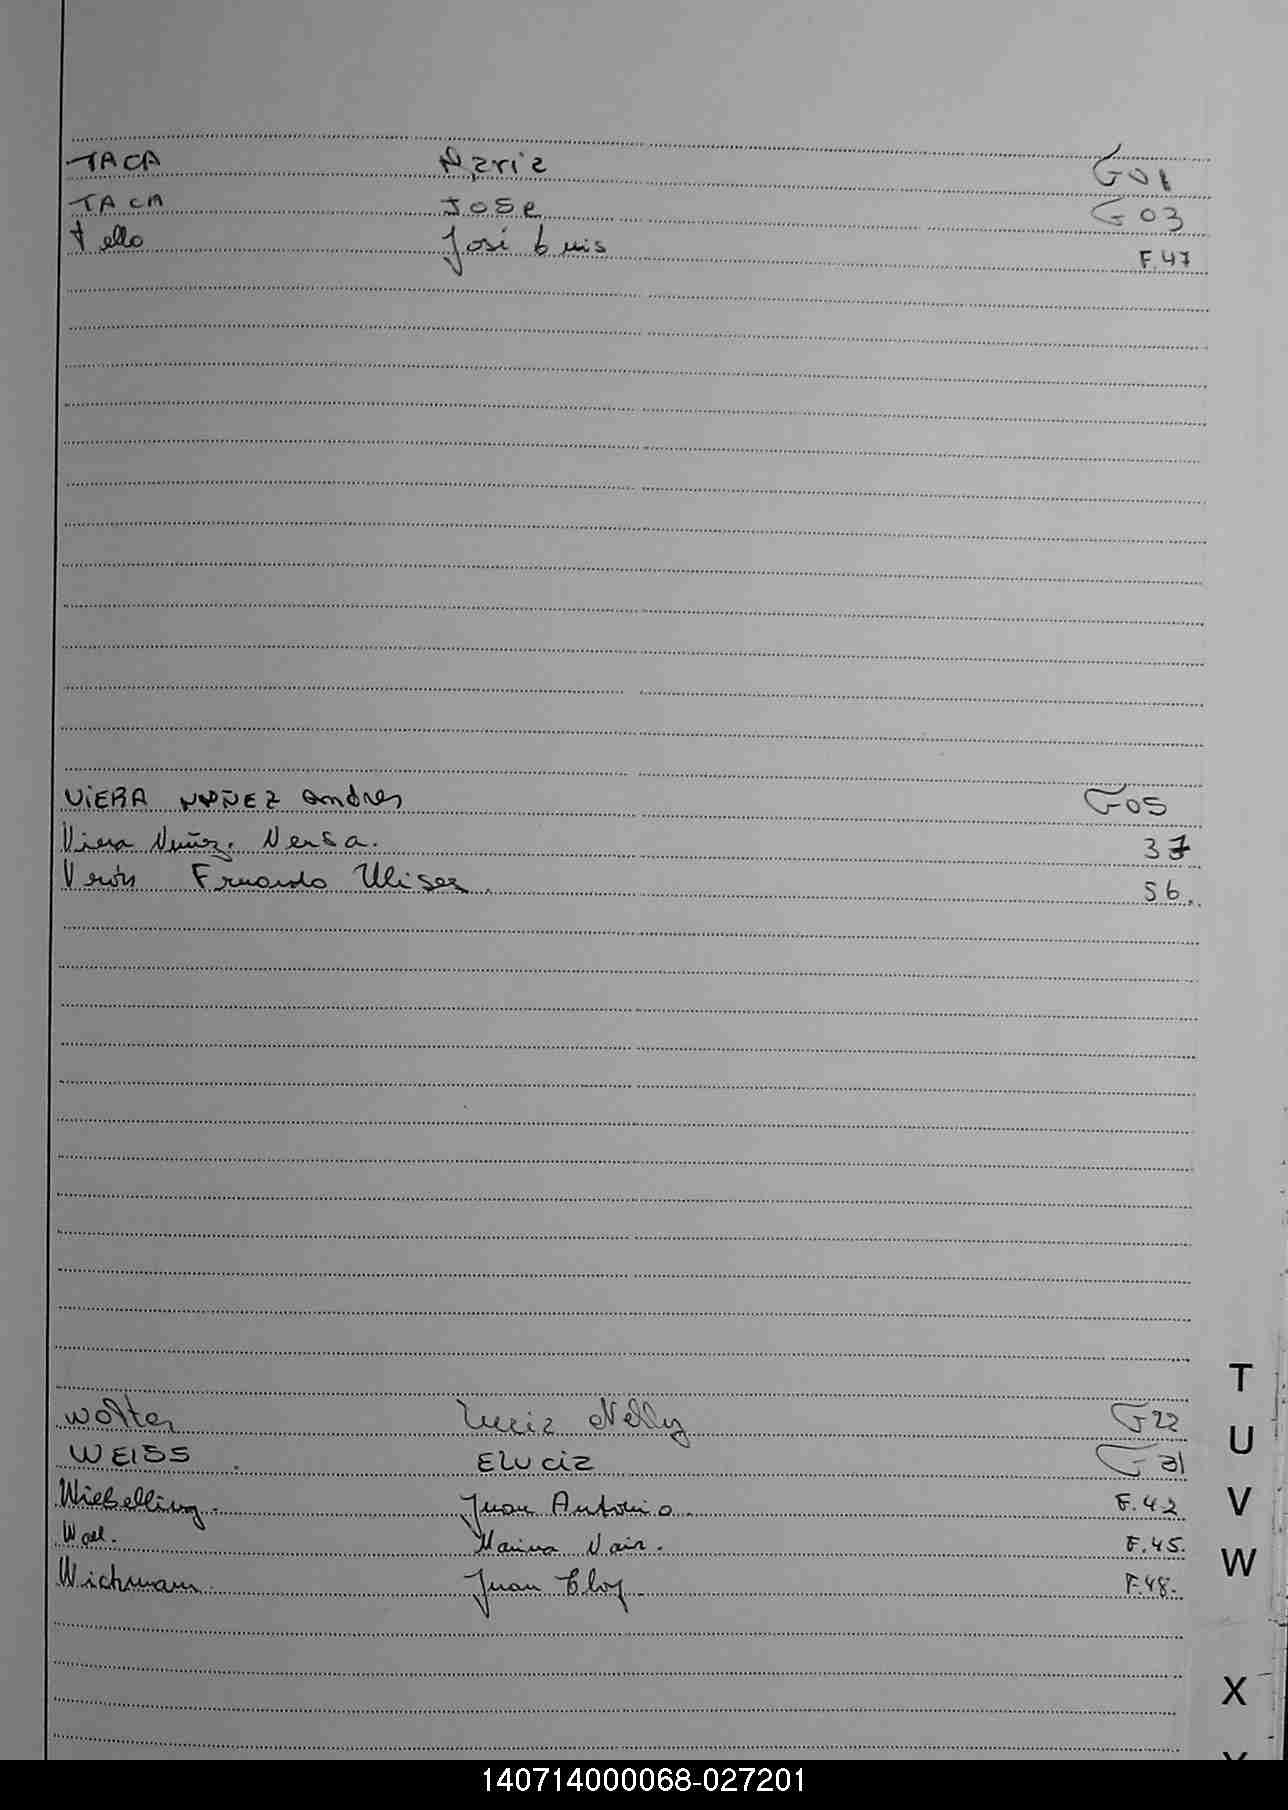 TACA Maria G01
TACA Jose G03
Tello José Luis F.47
VIERA NUÑEZ Andres G05
Viera Nuñez. Nersa. 37
Verón Fernando Ulises. 56.
Wolter Lucia Nelly G22
WEISS. Elucia G31
Wiebelling. Juan Antonio. F.42
Marina Nair. F.45.
Wichmann. Juan Eloy F.48.
T
U
V
W
X
140714000068-027201